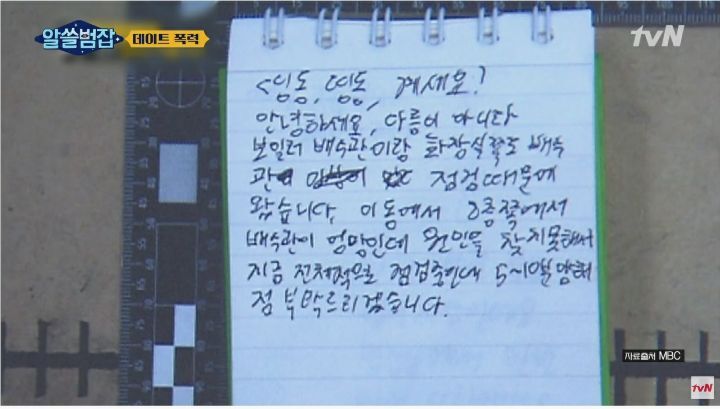 알쓸범잡 데이트 폭력
tvN
<딩동, 띵동, 계세요?
안녕하세요, 다름이 아니라
보일러 배수관이랑 화장실쪽도 배수
관 점검때문에
왔습니다. 이동에서 2층쪽에서
배수관이 엉망인데 원인을 찾지못해서
지금 전체적으로 점검중인데 5~10분 양해
점 부탁드리겠습니다.
자료출처 MBC
tvN